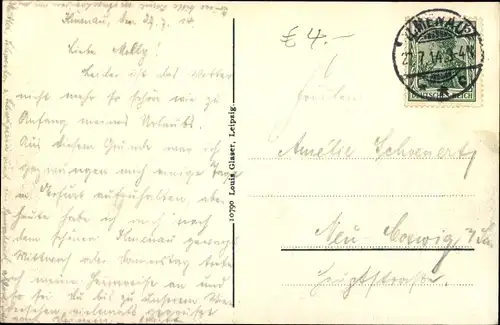 Ilmenau, den 27.7.14
Liebe Melly!
Leider ist das Wetter
nicht mehr so schön wie zu
Anfang meines Urlaubs.
Aus diesem Grunde war ich
gezwungen mich einige Tage
in Erfurt aufzuhalten, aber
heute habe ich mich nach
dem schönen Ilmenau gewagt.
Mittwoch oder Donnerstag trete
ich meine Heimreise an und
so sei Du bis zu unserem
vielmals gegrüßt
10790 Louis Glaser, Leipzig.
£ 4.-
ILMENAU
7.14.3-4N
DEUTSCHES REICH
Fräulein
Amélie Schoenert
Neu-Coswig i/Sa
Hauptstraße.